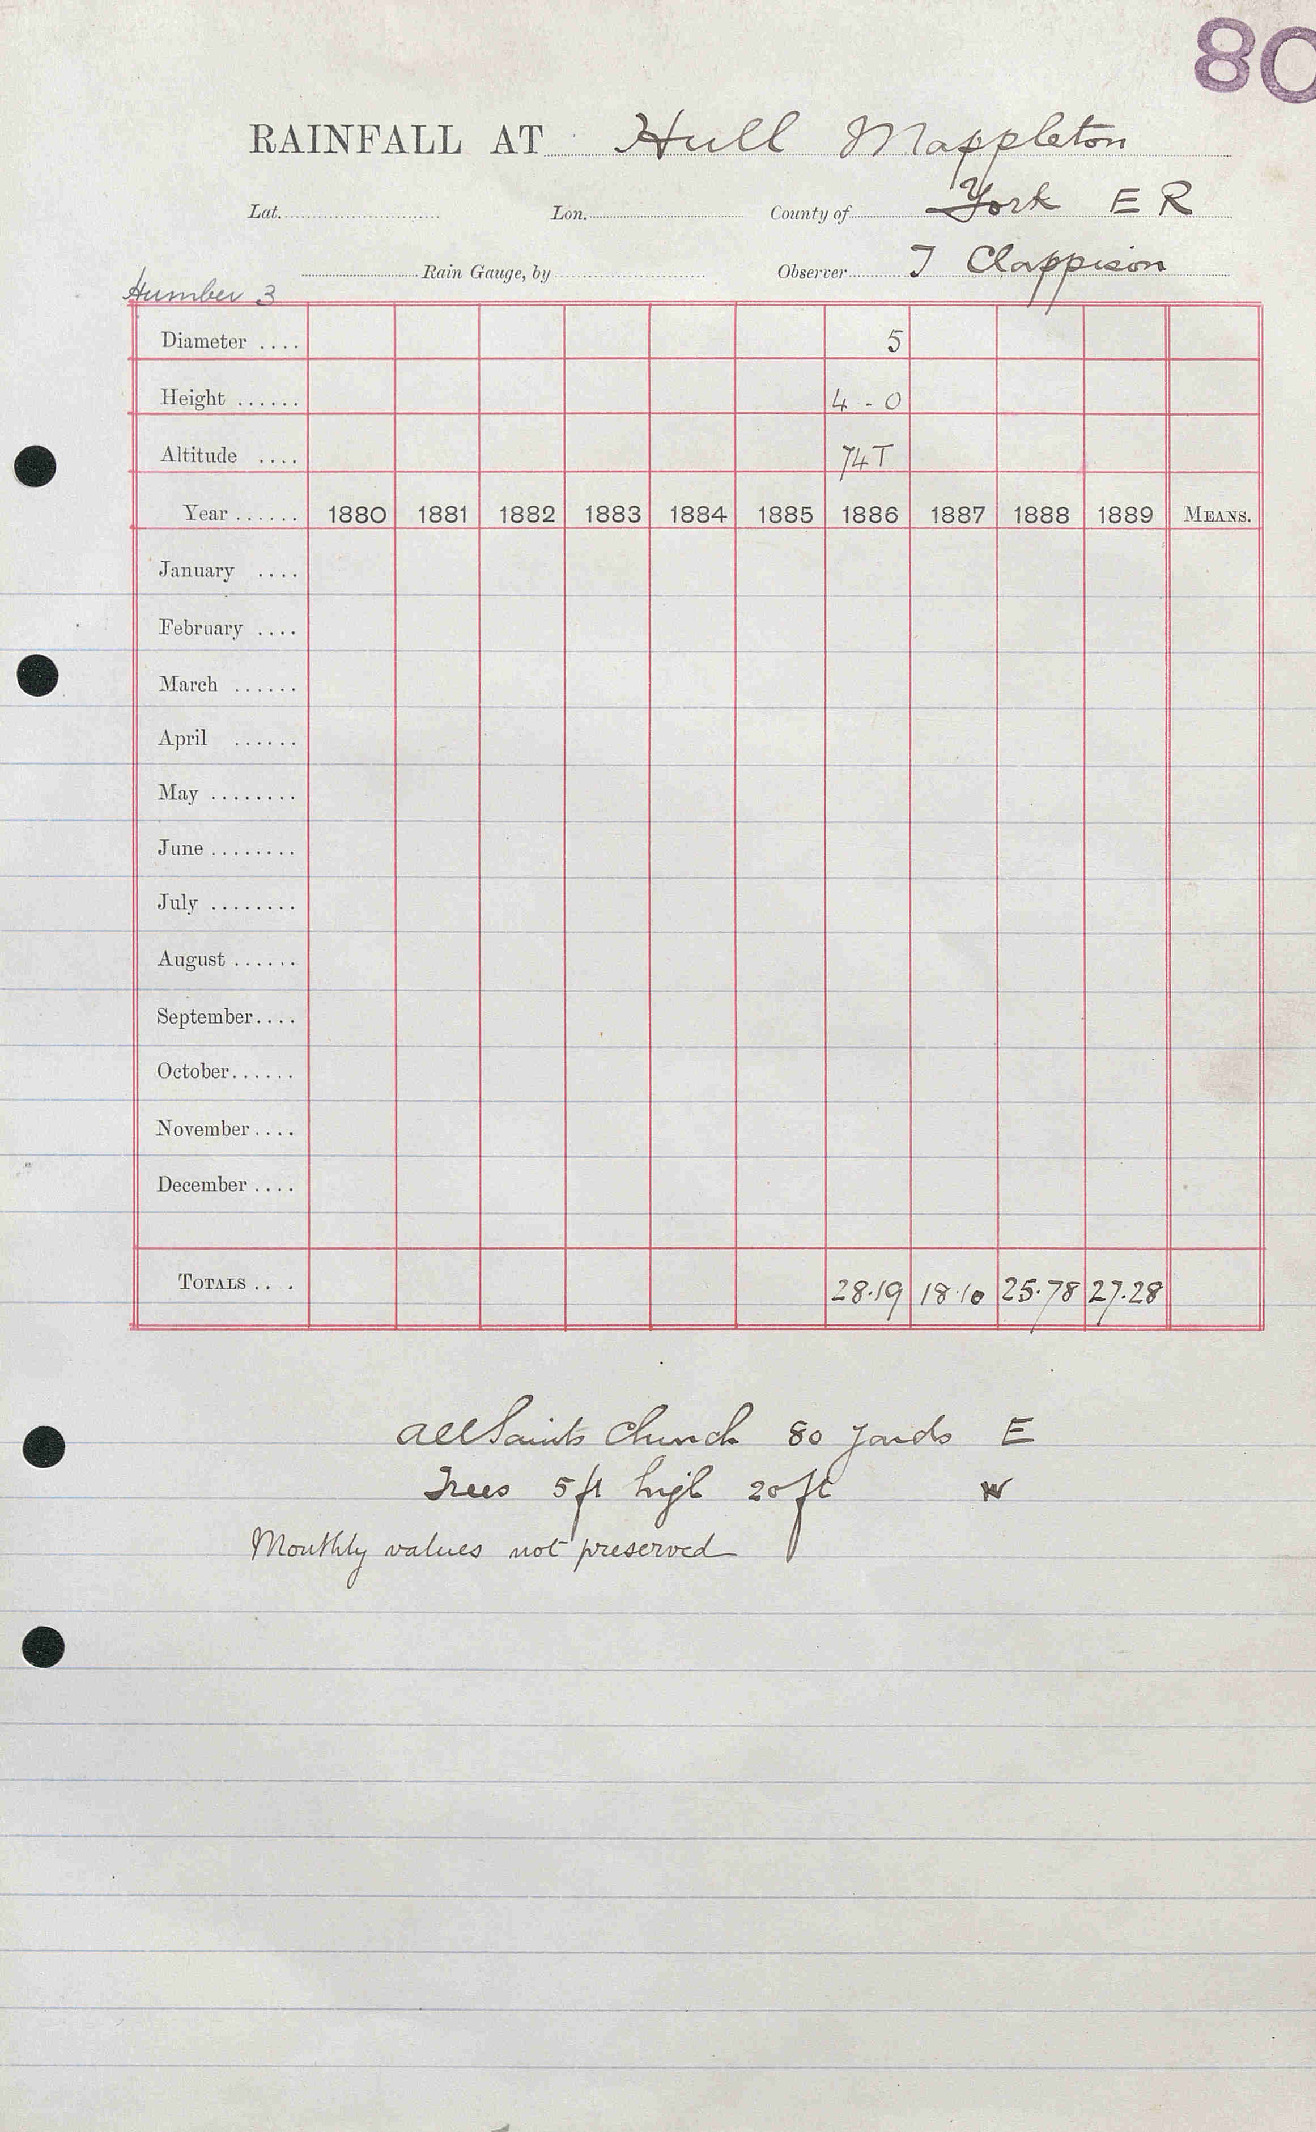 80
RAINFALL AT Hull Mappleton
Lat. Lon. County of York E R
Rain Gauge, by Observer T Clappison
Humber 3
Diameter .... 5
Height ...... 4 - 0
Altitude .... 74T
Year ...... 1880 1881 1882 1883 1884 1885 1886 1887 1888 1889 MEANS.
January ....
February ....
March ......
April ......
May ........
June ........
July ........
August ......
September....
October......
November....
December....
TOTALS .... 28.19 18.10 25.78 27.28
All Saints Church 80 yards E
Trees 5ft high 20ft W
Monthly values not preserved